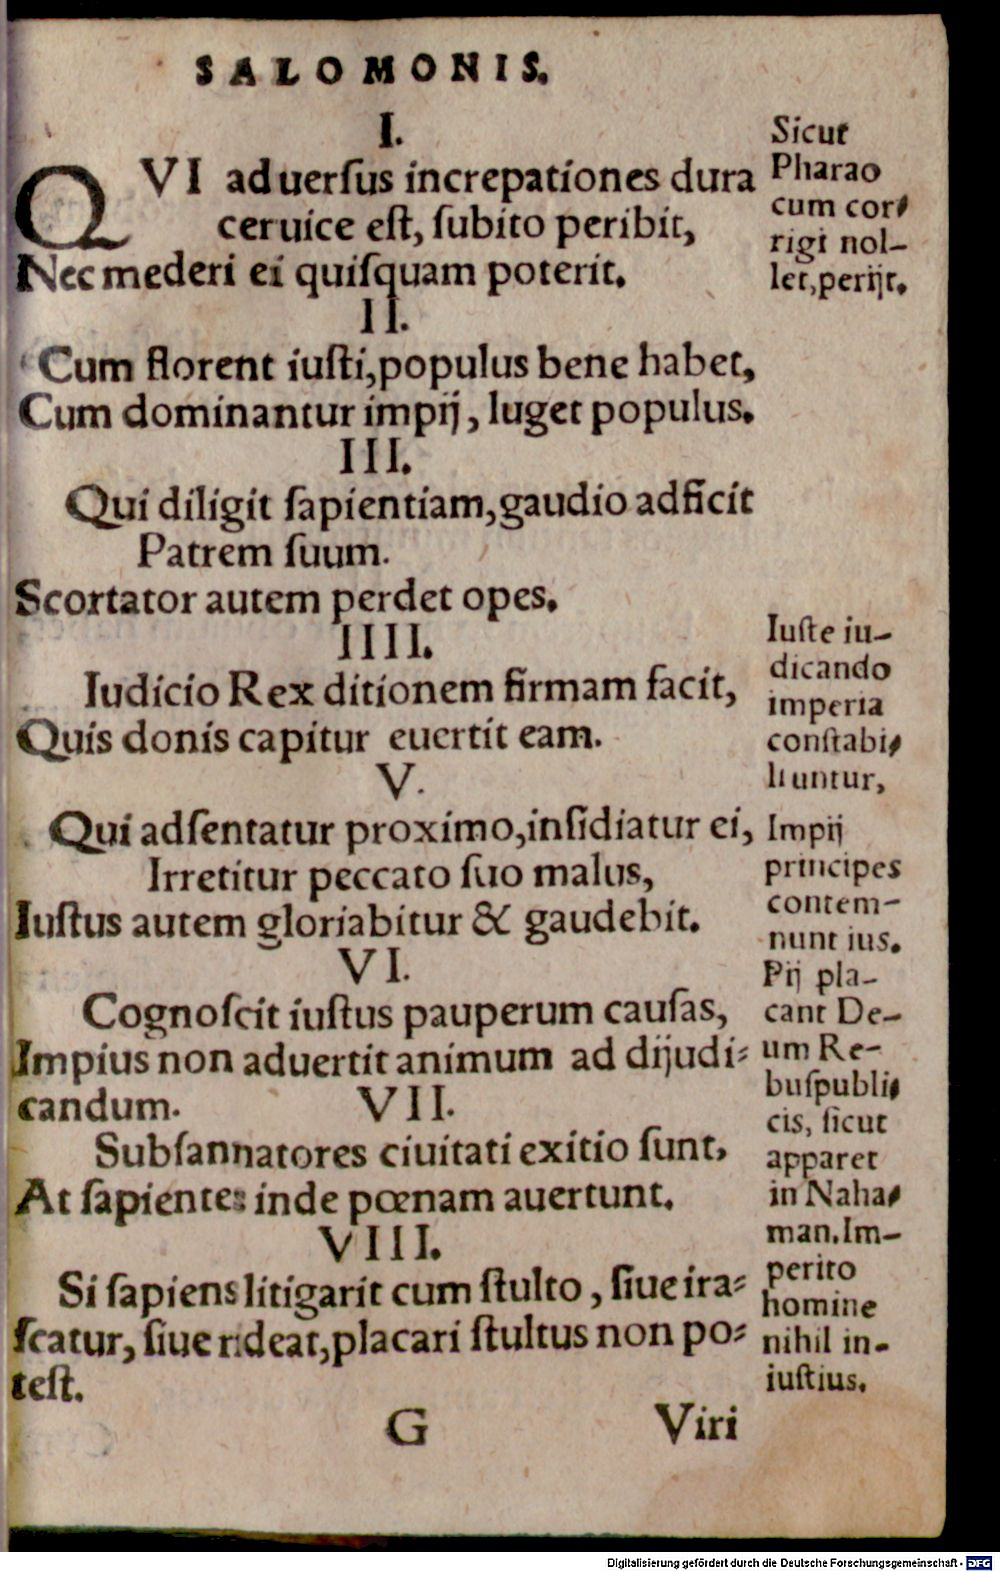 SALOMONIS.
I.
QVI aduerſus increpationes dura
ceruice eſt, ſubito peribit,
Nec mederi ei quiſquam poterit.
II.
Cum florent iuſti, populus bene habet,
Cum dominantur impij, luget populus.
III.
Qui diligit ſapientiam, gaudio adficit
Patrem ſuum.
Scortator autem perdet opes.
IIII.
Iudicio Rex ditionem firmam facit,
Quis donis capitur euertit eam.
V.
Qui adſentatur proximo, inſidiatur ei,
Irretitur peccato ſuo malus,
Iuſtus autem gloriabitur & gaudebit.
VI.
Cognoſcit iuſtus pauperum cauſas,
Impius non aduertit animum ad dijudi⸗
candum. VII.
Subſannatores ciuitati exitio ſunt,
At ſapientes inde pœnam auertunt.
VIII.
Si ſapiens litigarit cum ſtulto, ſiue ira⸗
ſcatur, ſiue rideat, placari ſtultus non po⸗
teſt.
G Viri
Sicut
Pharao
cum cor⸗
rigi nol-
let, perijt.
Iuſte iu-
dicando
imperia
conſtabi⸗
liuntur,
Impij
principes
contem-
nunt ius.
Pij pla-
cant De-
um Re-
buſpubli⸗
cis, ſicut
apparet
in Naha⸗
man. Im-
perito
homine
nihil in-
iuſtius.
Digitalisierung gefördert durch die Deutsche Forschungsgemeinschaft - DFG